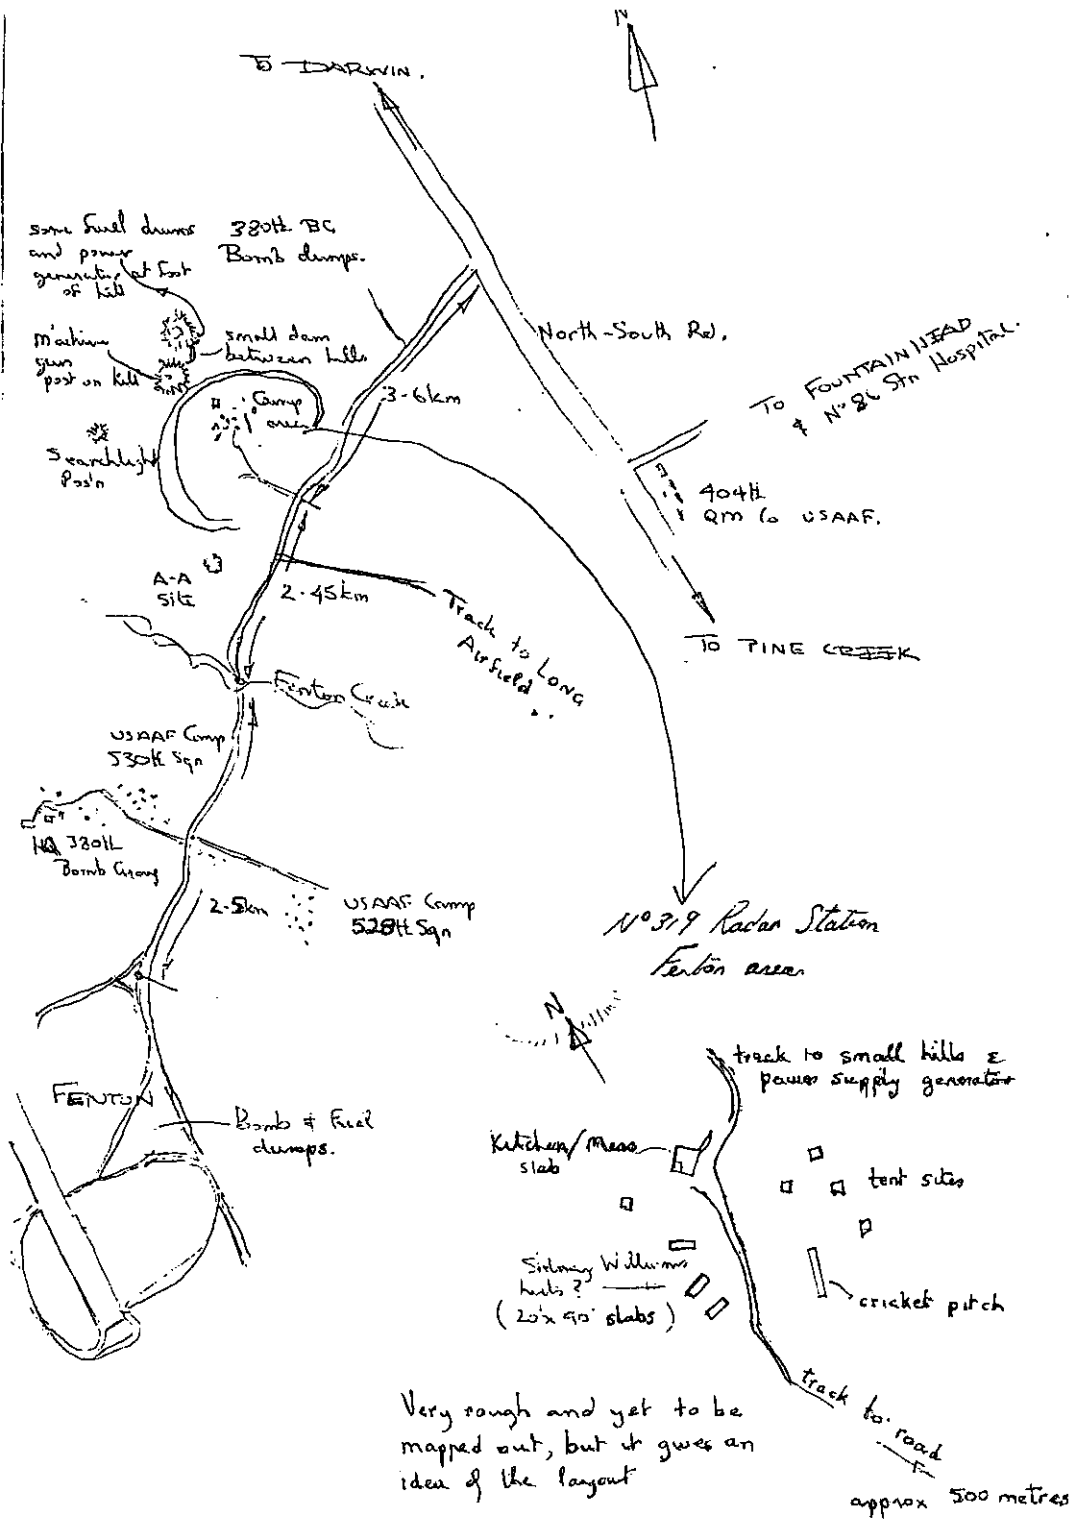 N
To DARWIN.
some fuel drums
and power
generator at foot
of hill
380th BG
Bomb dumps.
machine
gun
post on hill
small dam
between hills
North-South Rd.
3-6km
To FOUNTAIN HEAD
& No 86 Stn Hospital.
Camp
area
Searchlight
Pos'n
404th
QM Co USAAF.
A-A
Site
2-45km
Track to LONG
Airfield
To PINE CREEK
Fenton Creek
USAAF Camp
530th Sqn
HQ 380th
Bomb Group
2-5km
USAAF Camp
528th Sqn
No 319 Radar Station
Fenton area
N
FENTON
Bomb & Fuel
dumps.
track to small hills &
power supply generator
Kitchen/Mess
slab
tent sites
Sidney Williams
huts?
(20'x 40' slabs)
cricket pitch
track to road
approx 500 metres
Very rough and yet to be
mapped out, but it gives an
idea of the layout